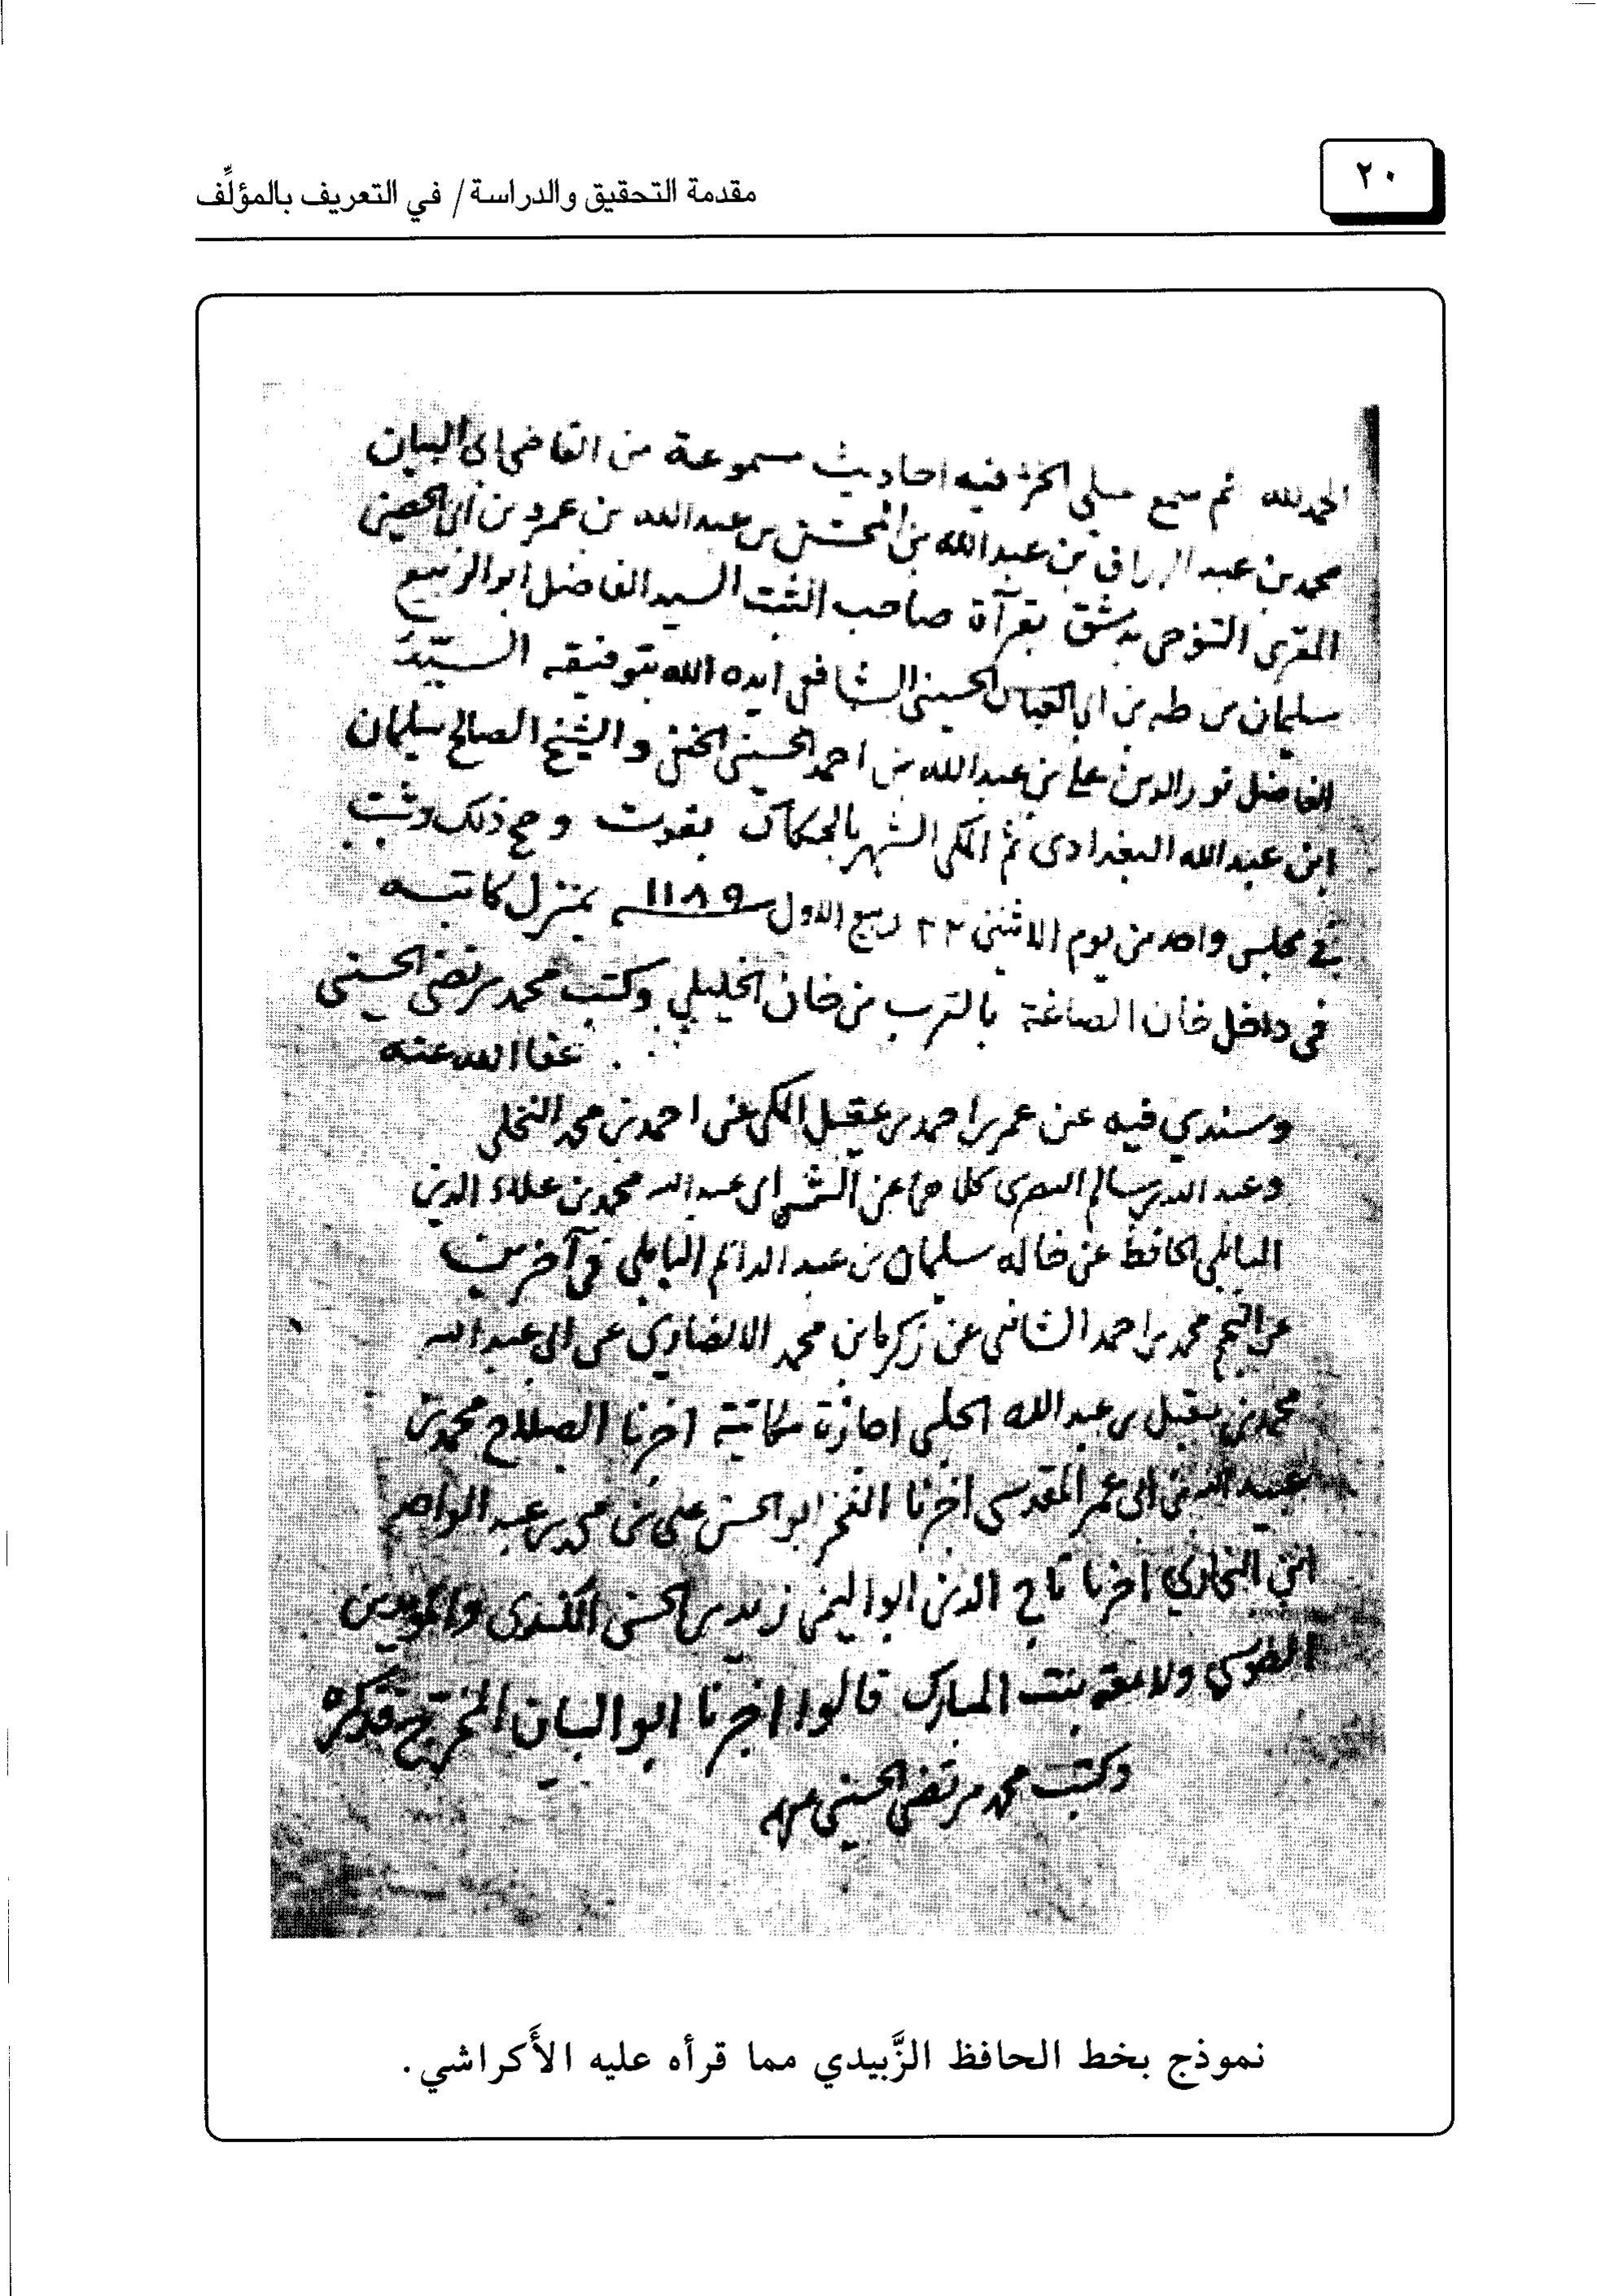 ٢٠
مقدمة التحقيق والدراسة / في التعريف بالمؤلِّف
الحمد لله ثم سمع علي الجزء فيه احاديث مسموعة من القاضي ابي البيان
محمد بن عبد الرزاق بن عبد الله بن المحسن بن عبد الله بن عمرو بن ابي الحصين
المعري التنوخي بدمشق بقرآة صاحب الثبت السيد الفاضل ابو الربيع
سليمان بن طه بن ابي العباس الحسيني الشافعي ايده الله بتوفيقه السيد
الفاضل نور الدين علي بن عبد الله بن احمد الحسيني الحنفي والشيخ الصالح سليمان
ابن عبد الله البغدادي ثم المكي الشهير بفوت وصح ذلك وثبت
في مجلس واحد من يوم الاثنين ٢٢ ربيع الاول سنة ١١٨٩ بمنزل كاتبه
في داخل خان الصاغة بالقرب من خان الخليلي وكتب محمد مرتضى الحسيني
عفا الله عنه
وسندي فيه عن عمر بن احمد بن عقيل المكي عن احمد بن محمد النخلي
وعبد الله بن سالم البصري كلاهما عن الشمس ابي عبد الله محمد بن علاء الدين
البابلي الحافظ عن خاله سليمان بن عبد الدائم البابلي في آخرين
عن النجم محمد بن احمد الشافعي عن زكريا بن محمد الانصاري عن ابي عبد الله
محمد بن مقبل بن عبد الله الحلبي اجازة مكاتبة اخبرنا الصلاح محمد بن
عبد الله بن ابي عمر المقدسي اخبرنا الفخر ابو الحسن علي بن عبد الواحد
ابن البخاري اخبرنا تاج الدين ابو اليمن زيد بن الحسن الكندي والمويد بن
الطوسي ولامعة بنت المبارك قالوا اخبرنا ابو البيان المخرج فذكره
وكتب محمد مرتضى الحسيني
نموذج بخط الحافظ الزَّبيدي مما قرأه عليه الأَكراشي.